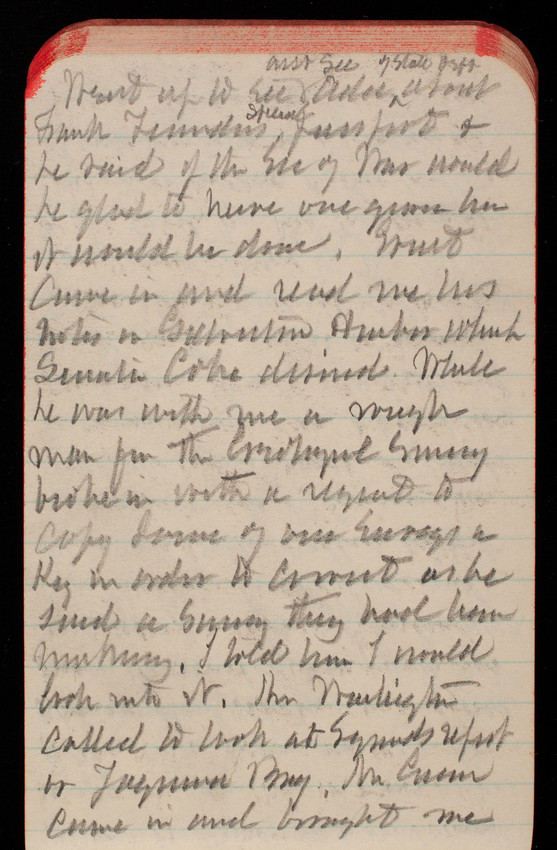 Asst Sec of State Dept
Went up to see Adee, about
Frank Special Passport &
he said if the Sec of War would
be glad to have one given him
it would be done.
Came in and read me his
notes on Galveston Harbor which
Senator Coke desired. While
he was with me a rough
man from the Geological Survey
broke in with a request to
copy some of our Surveys
Key in order to correct as he
said a Survey they had been
making, I told him I would
look into it. Mr
called to look at report
on Yaquina Bay. Mr
came in and brought me